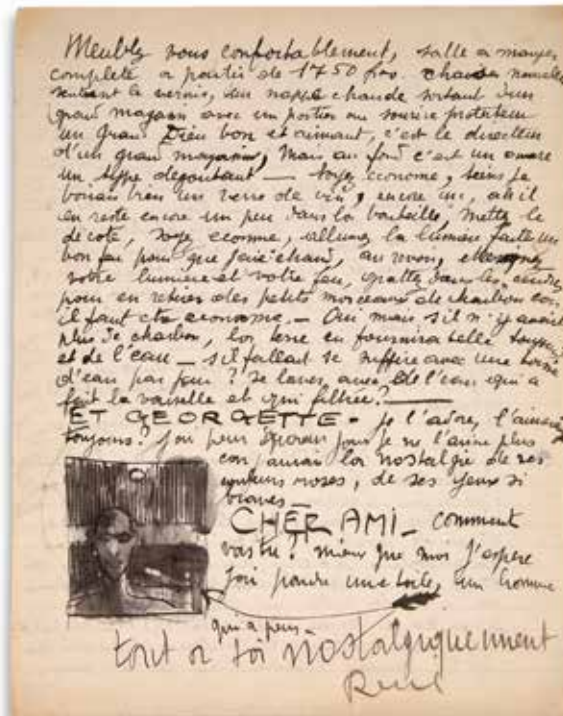 Meublez vous confortablement, salle a manger
complete a partir de 1750 frs. chaises nouvelles
sentant le vernis, une nappe chaude sortant d'un
grand magasin avec un portier au sourire protecteur
un grand Dieu bon et aimant, c'est le directeur
d'un grand magasin, Mais au fond c'est un avare
un type degoutant — Soyez econome, tiens je
boirais bien un verre de vin, encore un, ah il
en reste encore un peu dans la bouteille, mettez le
de coté, soyez econome, allumez la lumiere faites un
bon feu pour que j'aie chaud, au revoir,
votre lumiere et votre feu, grattez dans les cendres
pour en retirer des petits morceaux de charbon car
il faut etre econome. — Oui mais s'il n'y avait
plus de charbon, la terre en fournira t'elle toujours
et de l'eau — s'il fallait se suffire avec une
d'eau par jour? Se laver avec de l'eau qui a
fait la vaisselle et qui filtrée? —
ET GEORGETTE - je l'adore, l'aimerai
toujours? j'ai peur qu'un jour je ne l'aime plus
car j'aurai la nostalgie de ses
couleurs roses, de ses yeux si
braves —
CHER AMI — comment
vas tu? mieux que moi j'espere
j'ai peindre une toile, un homme
qui a peur —
tout a toi nostalgiquement
René